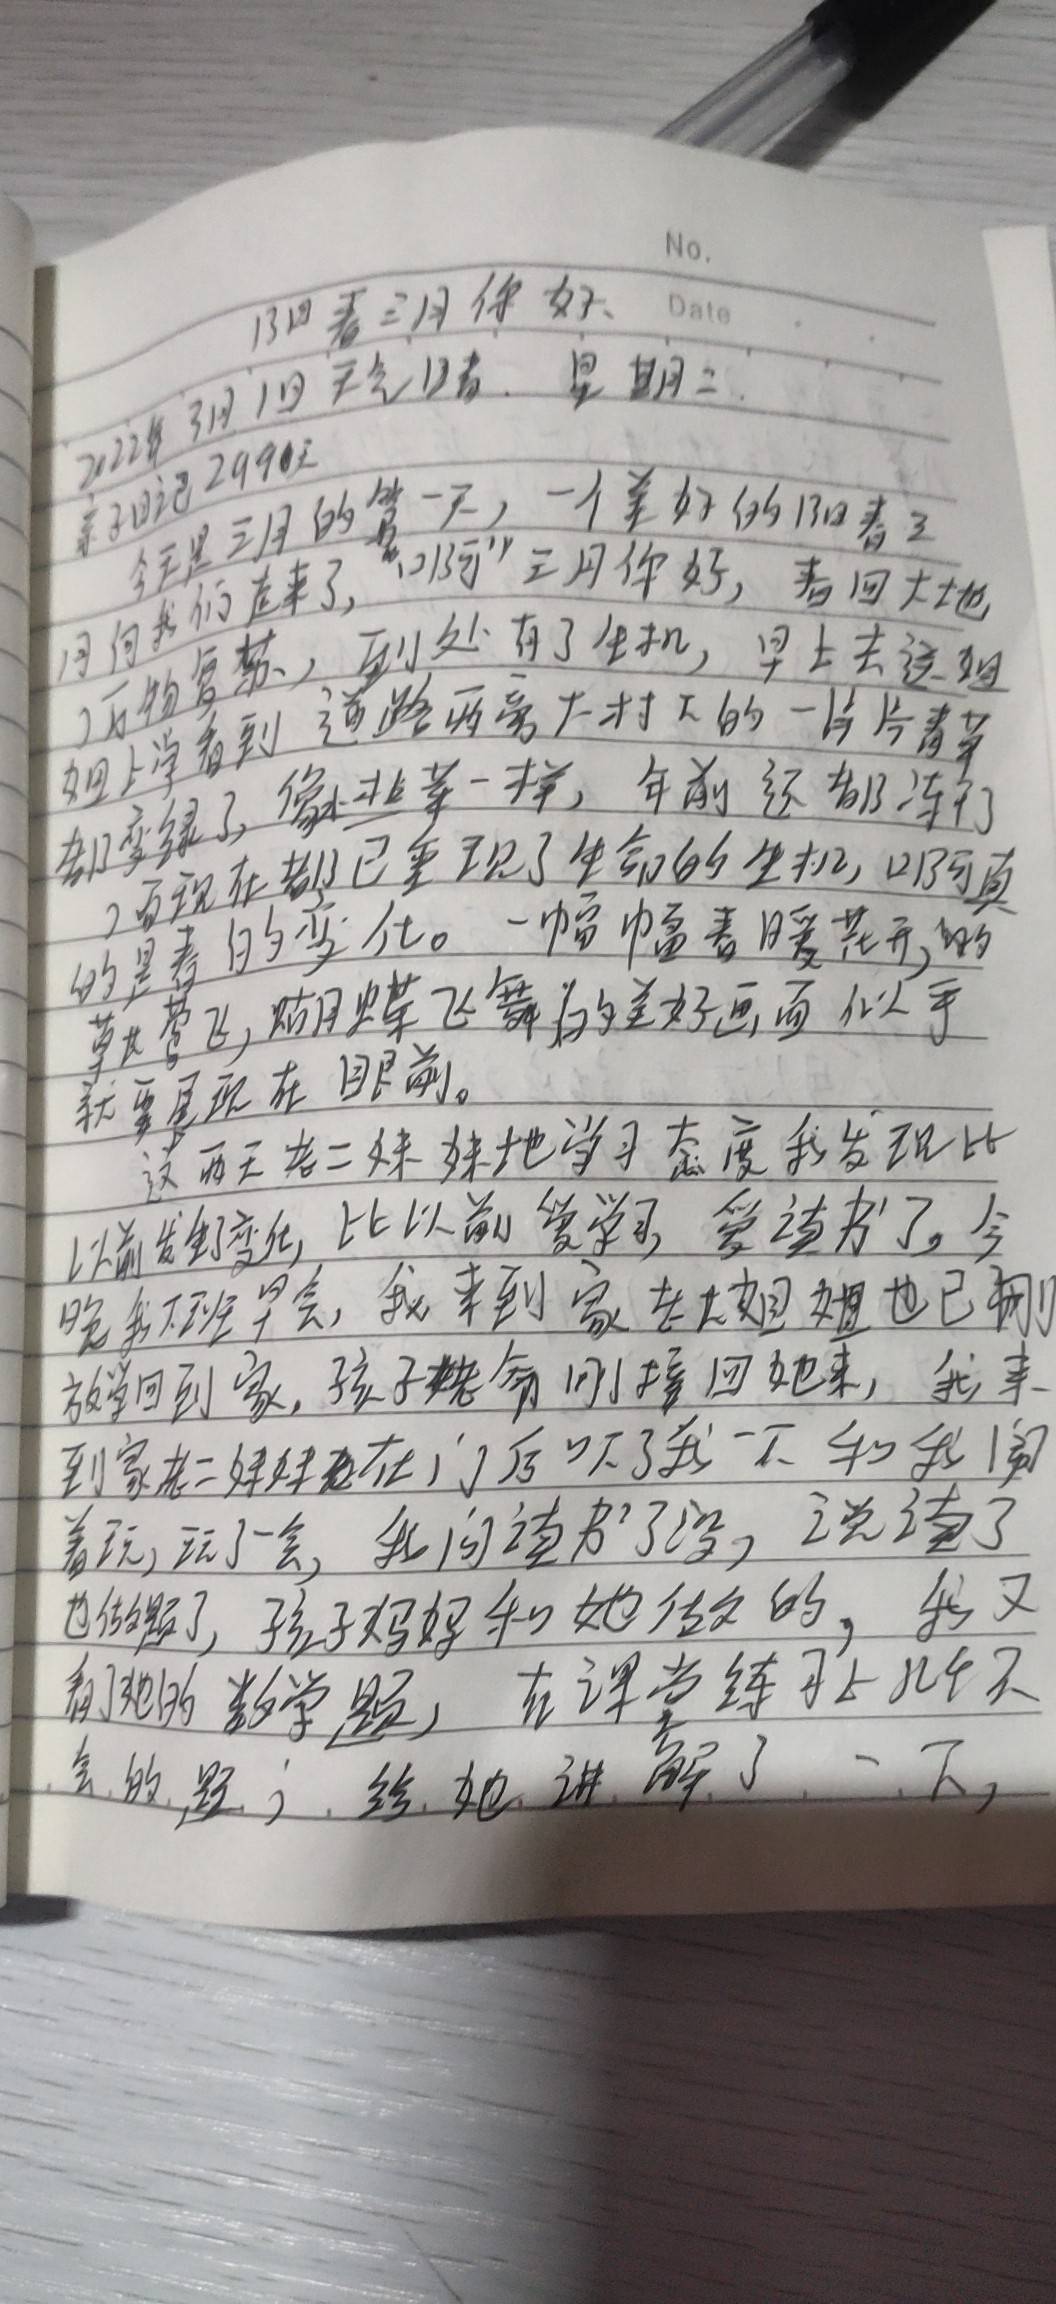 No.
Date
阳春三月你好、
2022年3月1日 天气晴 星期二.
亲子日记2990天
今天是三月的第一天，一个美好的阳春三
月向我们走来了，“啊”三月你好，春回大地，
万物复苏，到处有了生机，早上去送姐
姐上学看到道路两旁大树下的一片片青草
都变绿了，像韭菜一样，年前还都冻干了
而现在都已呈现了生命的生机，啊真
的是春的变化。一幅幅春暖花开，的
草长莺飞，蝴蝶飞舞的美好画面似乎
就要呈现在眼前。
这两天老二妹妹地学习态度我发现比
以前发生了变化，比以前爱学习，爱读书了。今
晚我下班早会，我来到家在大姐姐也已刚
放学回到家，孩子姥爷刚接回她来，我来
到家老二妹妹在门后吓了我一下和我闹
着玩，玩了一会，我问读书了没，说读了
也做题了，孩子妈妈和她做的，我又
看了她的数学题，在课堂练习上几个不
会的题；给她讲解了一下，